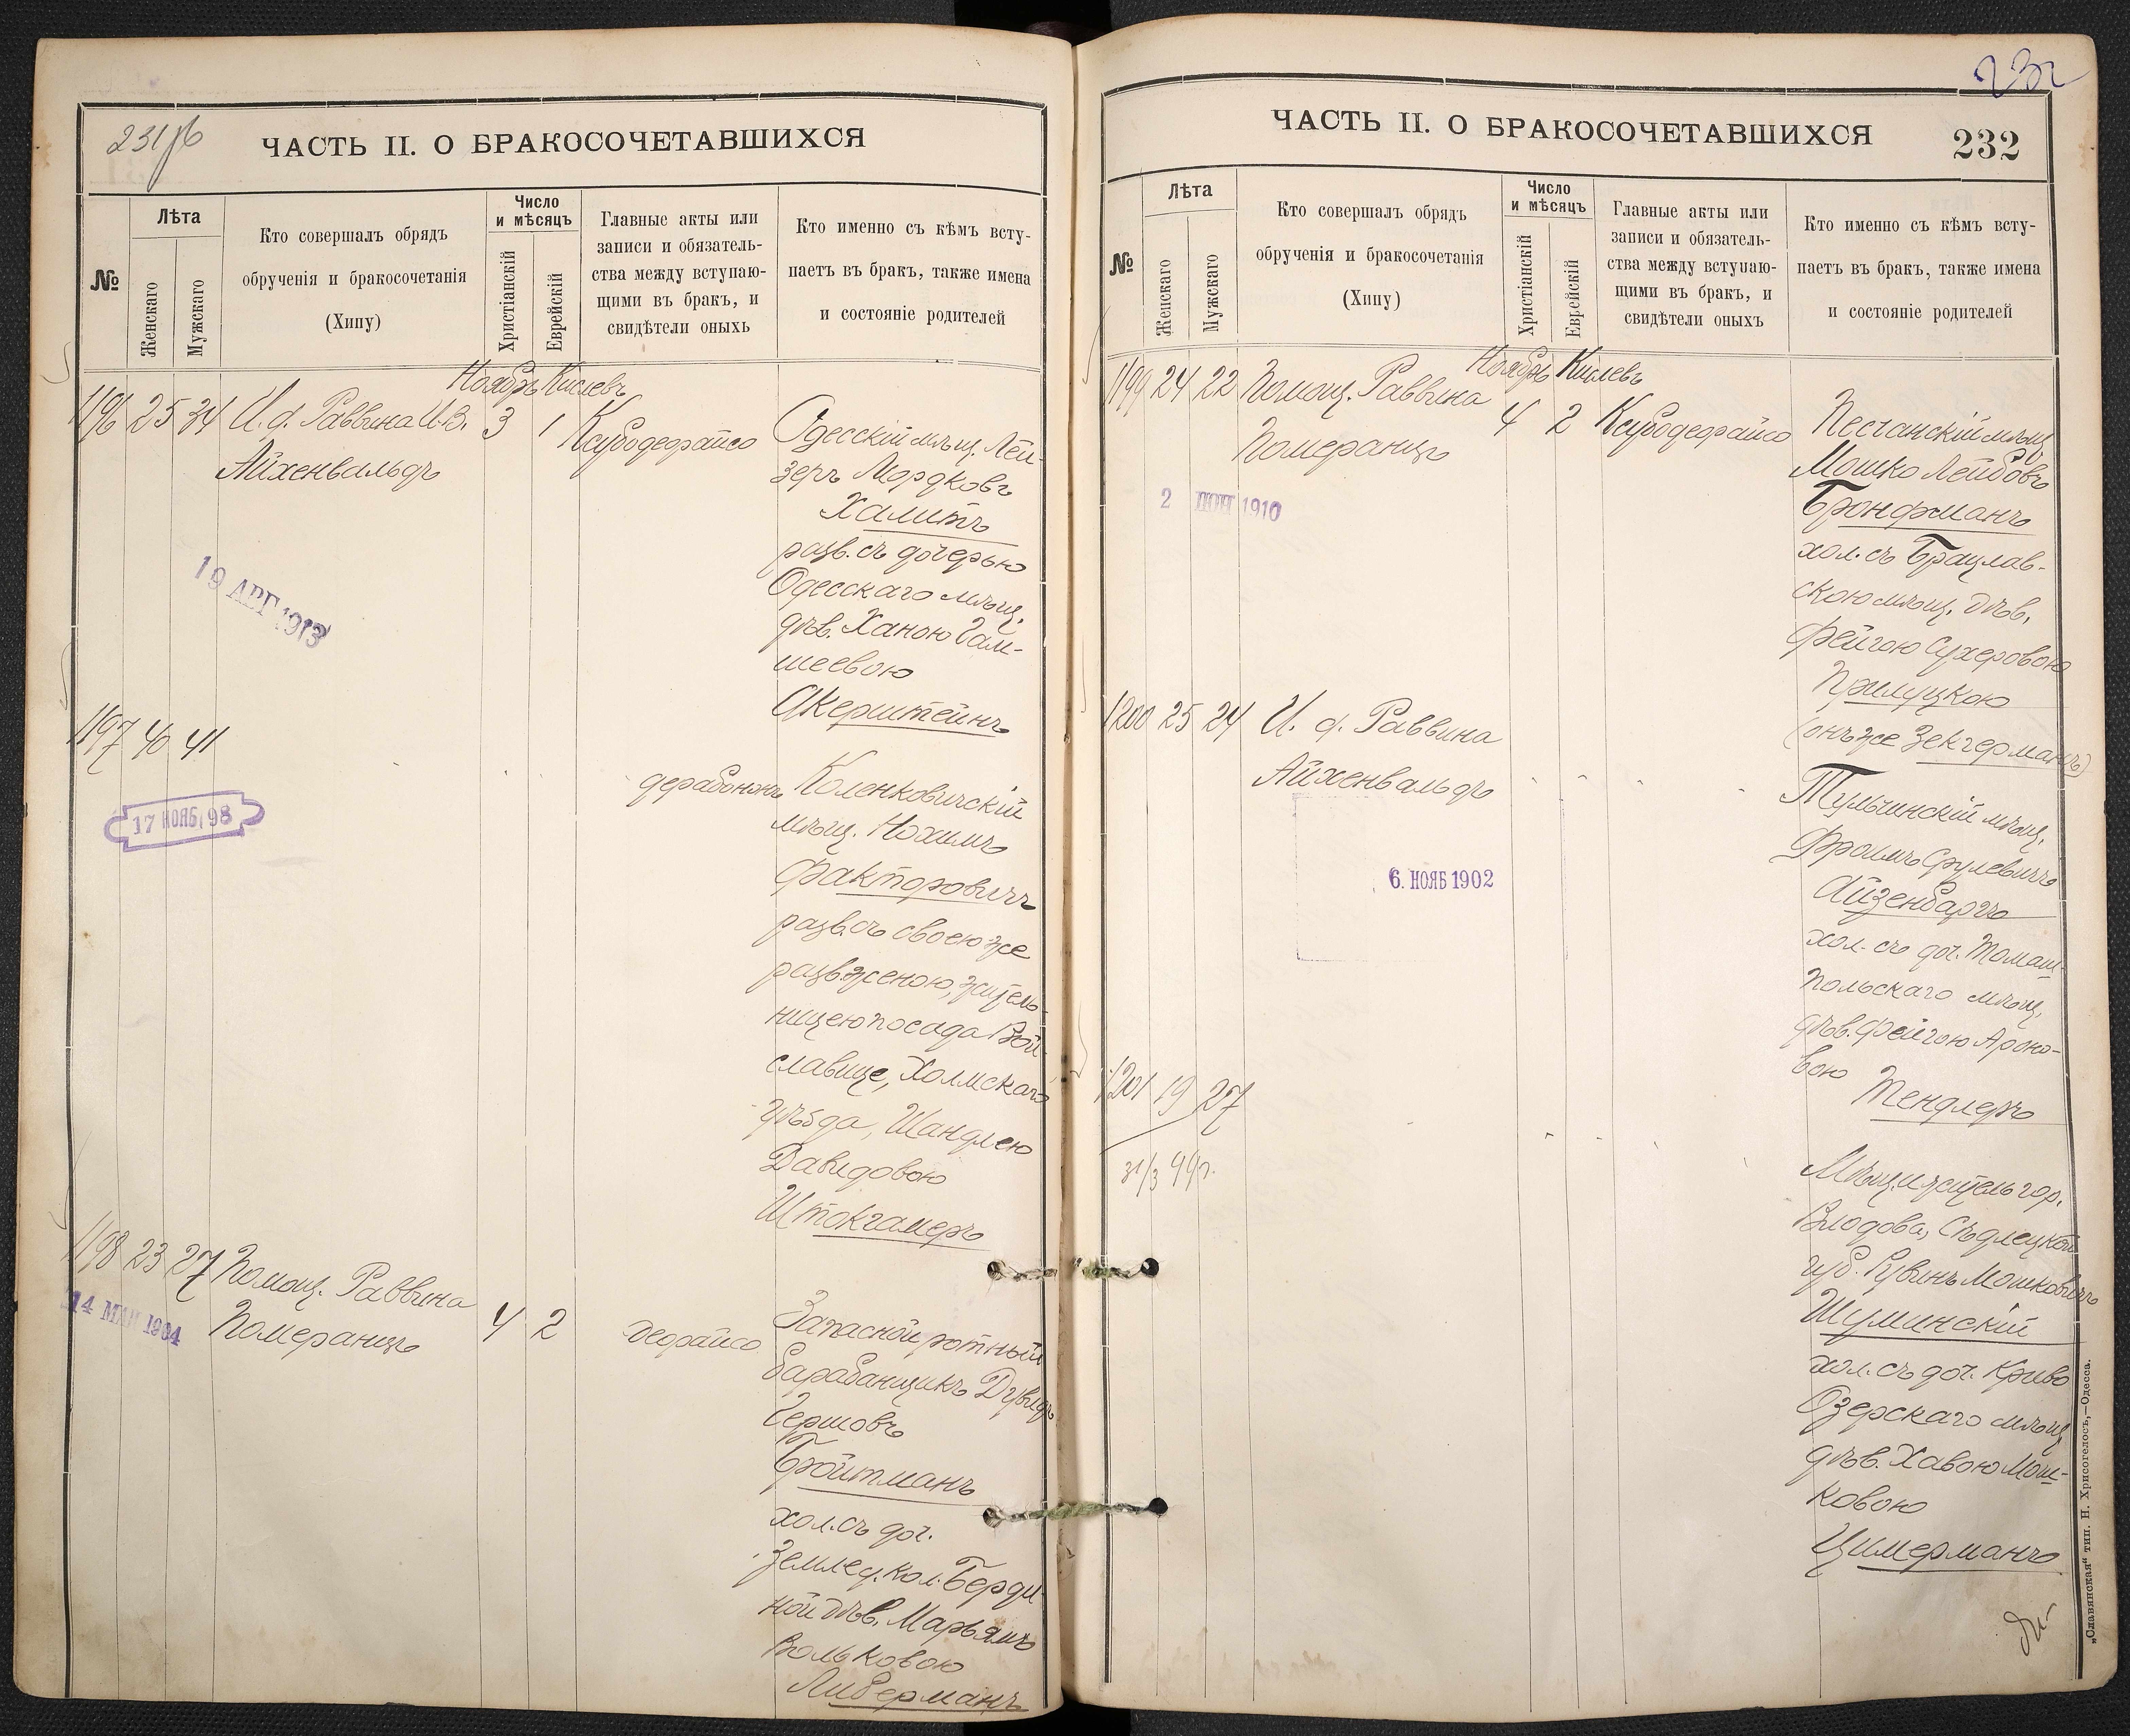 231об
ЧАСТЬ II. О БРАКОСОЧЕТАВШИХСЯ
№
Лѣта
Женскаго
Мужскаго
Кто совершалъ обрядъ
обрученія и бракосочетанія
(Хипу)
Число
и мѣсяцъ
Христіанскій
Еврейскій
Главные акты или
записи и обязатель-
ства между вступаю-
щими въ бракъ, и
свидѣтели оныхъ
Кто именно съ кѣмъ всту-
паетъ въ бракъ, также имена
и состояніе родителей
Ноябрь Кислевъ
1196 25 34 И. д. Раввина И.В. 3 1 Ксубодеорайсо
Айхенвальдъ
Одесскій мѣщ. Лей-
зеръ Мордковъ
Халитъ
разв. съ дочерью
Одесскаго мѣщ.
дѣв. Ханою Гам-
шеевою
Акерштейнъ
19 АВГ 1913
1197 40 41
дерабононъ
17 НОЯБ. 98
Коленковичскій
мѣщ. Нохимъ
Факторовичъ
разв. съ своею же
разв. женою, житель-
ницею посада Вой-
славице, Холмскаго
уѣзда, Шандлею
Давидовою
Штокгамеръ
1198 23 27 Помощ. Раввина
Померанцъ 4 2 деорайсо
14 МАЯ 1904
Запасной ротный
барабанщикъ Дувидъ
Гершовъ
Бройтманъ
хол. съ доч.
землед. кол. Берди-
ной дѣв. Марьямъ
Вольковою
Либерманъ
232
ЧАСТЬ II. О БРАКОСОЧЕТАВШИХСЯ
232
№
Лѣта
Женскаго
Мужскаго
Кто совершалъ обрядъ
обрученія и бракосочетанія
(Хипу)
Число
и мѣсяцъ
Христіанскій
Еврейскій
Главные акты или
записи и обязатель-
ства между вступаю-
щими въ бракъ, и
свидѣтели оныхъ
Кто именно съ кѣмъ всту-
паетъ въ бракъ, также имена
и состояніе родителей
Ноябрь Кислевъ
1199 24 22 Помощ. Раввина 4 2 Ксубодеорайсо
Померанцъ
2 1910
Песчанскій мѣщ.
Мошко Лейбовъ
Бронфманъ
хол. съ Брацлав-
скою мѣщ. дѣв.
Фейгою Сухеровою
Прилуцкою
(онъ же Зекцерманъ)
1200 25 24 И. д. Раввина
Айхенвальдъ
6. НОЯБ 1902
Тульчинскій мѣщ.
Фроимъ Срулевичъ
Айзенбаргъ
хол. съ доч. Томаш-
польскаго мѣщ.
дѣв. Фейгою Ароно-
вою
Тендлеръ
1201 19 27
31/3 99г.
Мѣщ. и житель гор.
Влодова, Сѣдлецкой
губ. Рувинъ Мошковичъ
Шуминскій
хол. съ доч. Криво
Озерскаго мѣщ.
дѣв. Хавою Мош-
ковою
Цимерманъ
„Славянская“ тип. Н. Хрисогелосъ,—Одесса.